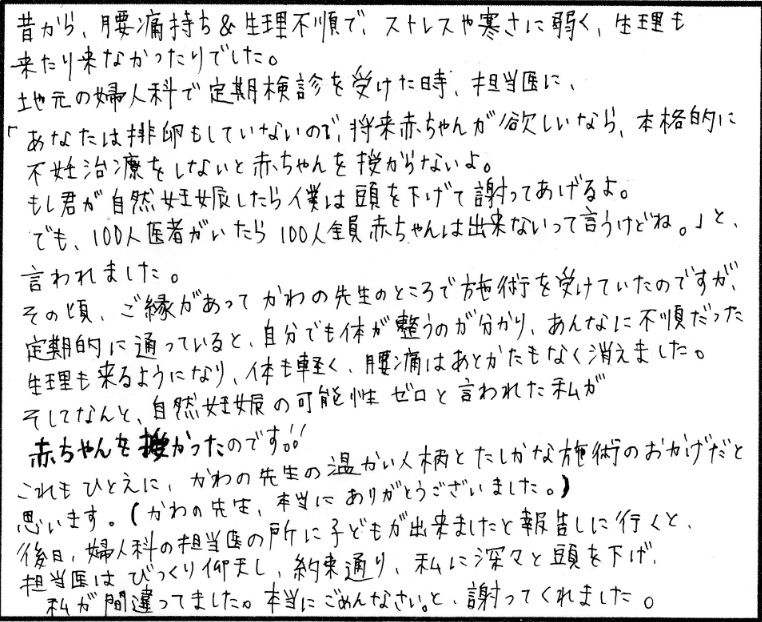 昔から、腰痛持ち&生理不順で、ストレスや寒さに弱く、生理も
来たり来なかったりでした。
地元の婦人科で定期検診を受けた時、担当医に、
「あなたは排卵もしていないので、将来赤ちゃんが欲しいなら、本格的に
不妊治療をしないと赤ちゃんを授からないよ。
もし君が自然妊娠したら僕は頭を下げて謝ってあげるよ。
でも、100人医者がいたら100人全員赤ちゃんは出来ないって言うけどね。」と、
言われました。
その頃、ご縁があってかわの先生のところで施術を受けていたのですが、
定期的に通っていると、自分でも体が整うのが分かり、あんなに不順だった
生理も来るようになり、体も軽く、腰痛はあとかたもなく消えました。
そしてなんと、自然妊娠の可能性ゼロと言われた私が
赤ちゃんを授かったのです!!
これもひとえに、かわの先生の温かい人柄とたしかな施術のおかげだと
思います。(かわの先生、本当にありがとうございました。)
後日、婦人科の担当医の所に子どもが出来ましたと報告しに行くと、
担当医はびっくり仰天し、約束通り、私に深々と頭を下げ、
私が間違ってました。本当にごめんなさい。と、謝ってくれました。